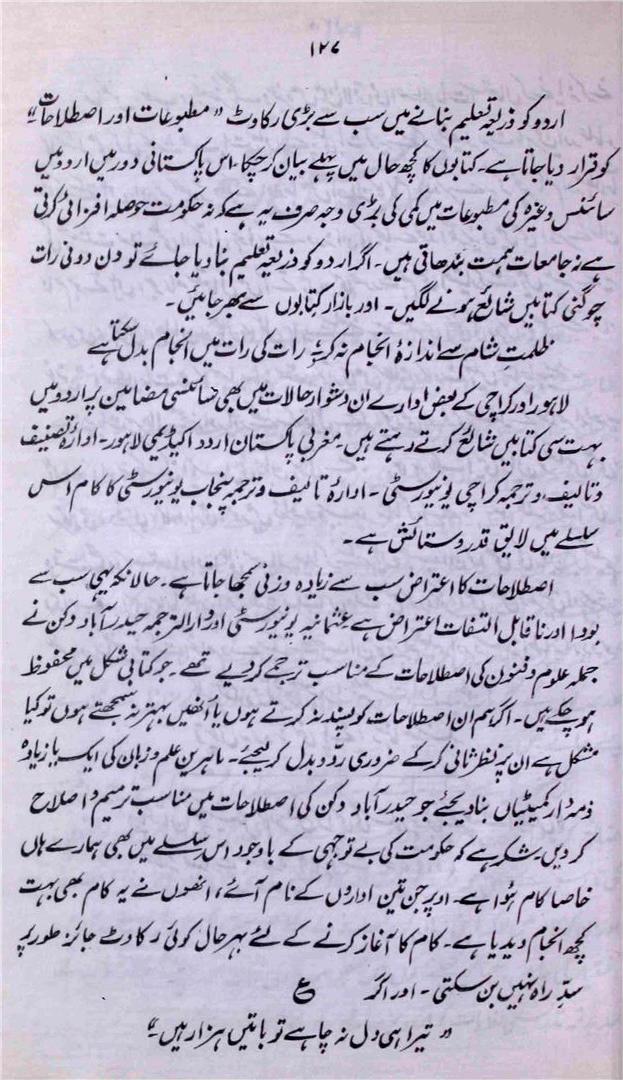 ۱۲۷
اردو کو ذریعہ تعلیم بنانے میں سب سے بڑی رکاوٹ "مطبوعات اور اصطلاحات"
کو قرار دیا جاتا ہے۔ کتابوں کا کچھ حال میں پہلے بیان کر چکا۔ اس پاکستانی دور میں اردو میں
سائنس وغیرہ کی مطبوعات میں کمی کی بڑی وجہ صرف یہ ہے کہ نہ حکومت حوصلہ افزائی کرتی
ہے نہ جامعات ہمت بندھاتی ہیں۔ اگر اردو کو ذریعہ تعلیم بنا دیا جائے تو دن دونی رات
چوگنی کتابیں شائع ہونے لگیں۔ اور بازار کتابوں سے بھر جائیں۔
ظلمتِ شام سے اندازۂ انجام نہ کر رات کی رات میں انجام بدل سکتا ہے
لاہور اور کراچی کے بعض ادارے ان دشوار حالات میں بھی سائنسی مضامین پر اردو میں
بہت سی کتابیں شائع کرتے رہتے ہیں۔ مغربی پاکستان اردو اکیڈیمی لاہور۔ ادارۂ تصنیف
و تالیف و ترجمہ کراچی یونیورسٹی۔ ادارۂ تالیف و ترجمہ پنجاب یونیورسٹی کا کام اس
سلسلے میں لایق قدر و ستائش ہے۔
اصطلاحات کا اعتراض سب سے زیادہ وزنی سمجھا جاتا ہے۔ حالانکہ یہی سب سے
بودا اور ناقابل التفات اعتراض ہے عثمانیہ یونیورسٹی اور دارالترجمہ حیدرآباد دکن نے
جملہ علوم و فنون کی اصطلاحات کے مناسب ترجمے کر دیے تھے۔ جو کتابی شکل میں محفوظ
ہو چکے ہیں۔ اگر ہم ان اصطلاحات کو پسند نہ کرتے ہوں یا اُنھیں بہتر نہ سمجھتے ہوں تو کیا
مشکل ہے ان پر نظر ثانی کرکے ضروری ردّ و بدل کر لیجئے۔ ماہرین علم و زبان کی ایک یا زیادہ
ذمہ دار کمیٹیاں بنا دیجئے جو حیدرآباد دکن کی اصطلاحات میں مناسب ترمیم و اصلاح
کر دیں۔ شکر ہے کہ حکومت کی بے توجہی کے باوجود اس سلسلے میں بھی ہمارے ہاں
خاصا کام ہُوا ہے۔ اوپر جن تین اداروں کے نام آئے، انھوں نے یہ کام بھی بہت
کچھ انجام دیدیا ہے۔ کام کا آغاز کرنے کے لئے بہرحال کوئی رکاوٹ جائز طور پر
سدِّ راہ نہیں بن سکتی۔ اور اگر ع
"تیرا ہی دل نہ چاہے تو باتیں ہزار ہیں۔"